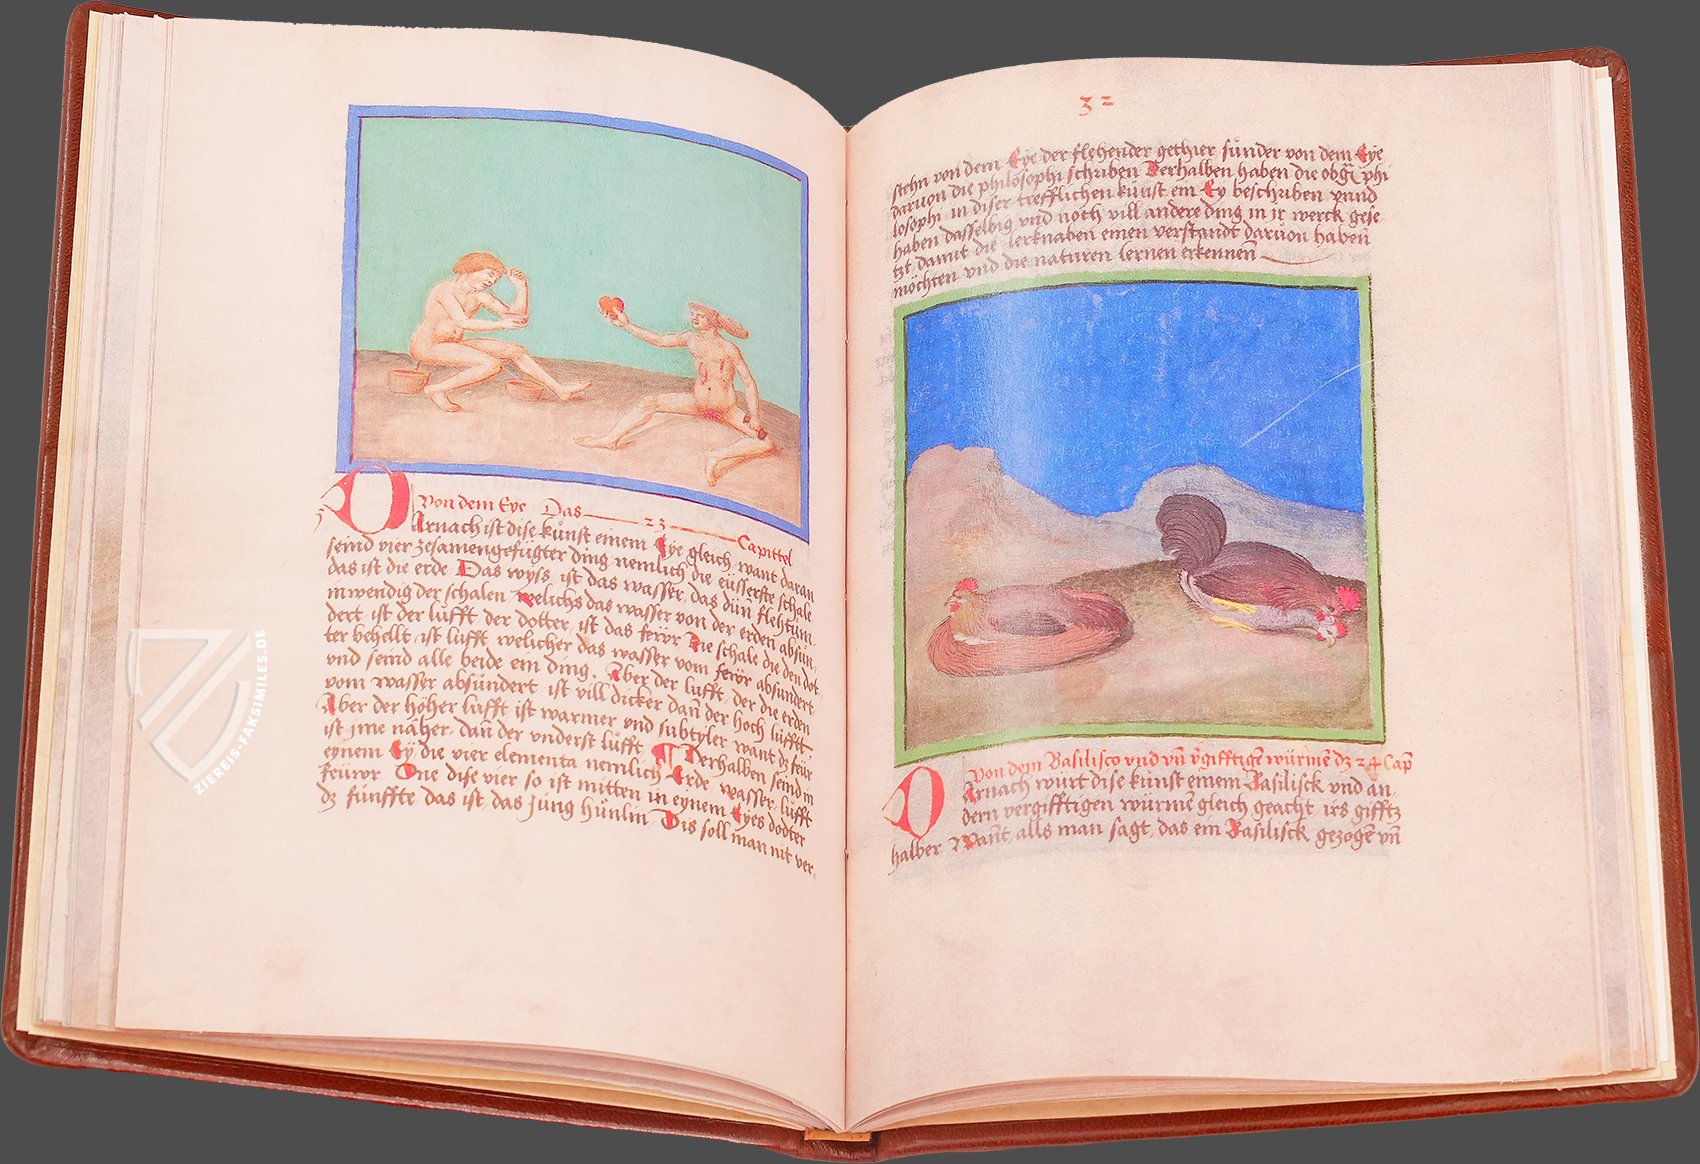 Von dem Eye Das 23 Capittel
Darnach ist dise kunst einem Eye gleich want daran
seind vier zesamengefügter ding nemlich die eüsserste schale
das ist die erde Das wyss ist das wasser, das dün flehtum
inwendig der schalen welichs das wasser von der erden absun
dert ist der lufft der dotter ist das feror Die schale die den dot
ter behelt ist lufft welicher das wasser vom feror absundert
und seind alle beide ein ding. Aber der lufft der die erden
vom wasser absundert ist vill dicker dan der hoch lufft
Aber der hoher lufft ist warmer und subtyler want dz feür
ist jme näher dan der underst lufft Derhalben seind in
eynem Ey die vier elementa nemlich Erde wasser lufft
feüror One dise vier so ist mitten in eynem Eyes dodter
dz fünffte das ist das jung hünlin Dis soll man nit ver
32
stehn von dem Eye der flehender gethier sunder von dem Eye
daruon die philosophi schriben Derhalben haben die obgn phi
losophi in diser trefflichen kunst ein Ey beschriben vnnd
haben dasselbig vnd noch vill andere ding in jr werck gese
tzt damit die lerknaben einen verstandt daruon haben
möchten und die naturen lernen erkennen
Von dem Basilisco vnd vn vgifftige würme dz 24 Cap
Darnach wurt dise kunst einem Basilisck und an
dern vergifftigen würme gleich geacht irs gifftz
halber Want alls man sagt, das ein Basilisck gezoge vn
ZIEREIS-FAKSIMILES.DE